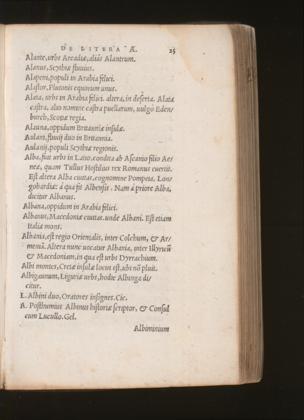 DE LITERA Æ. 25
Alante, urbs Arcadiæ, aliâs Alantrum.
Alanus, Scythiæ fluuius.
Alapeni, populi in Arabia felici.
Alastor, Plutonis equorum unus.
Alata, urbs in Arabia felici. altera, in deserta. Alata
castra, alio nomine castra puellarum, uulgò Eden-
burch, Scotiæ regia.
Alauna, oppidum Britanniæ insulæ.
Aulani, fluuij duo in Britannia.
Aulanij, populi Scythiæ regionis.
Alba, fuit urbs in Latio, condita ab Ascanio filio Ae-
neæ, quam Tullus Hostilius rex Romanus euertit.
Est altera Alba ciuitas, cognomine Pompeia, Lon-
gobardiæ: à qua fit Albensis. Nam à priore Alba,
dicitur Albanus.
Albana, oppidum in Arabia felici.
Albanus, Macedoniæ ciuitas. unde Albani. Est etiam
Italiæ mons.
Albania, est regio Orientalis, inter Colchum, & Ar-
meniã. Altera nunc uocatur Albania, inter Illyricũ
& Macedoniam, in qua est urbs Dyrrachium.
Albi montes, Cretæ insulæ locus est, ubi nõ pluit.
Albigaunum, Liguriæ urbs, hodie Albinga di-
citur.
L. Albini duo, Oratores insignes. Cic.
A. Posthumius Albinus historiæ scriptor, & Consul
cum Lucullo. Gel.
Albiminium